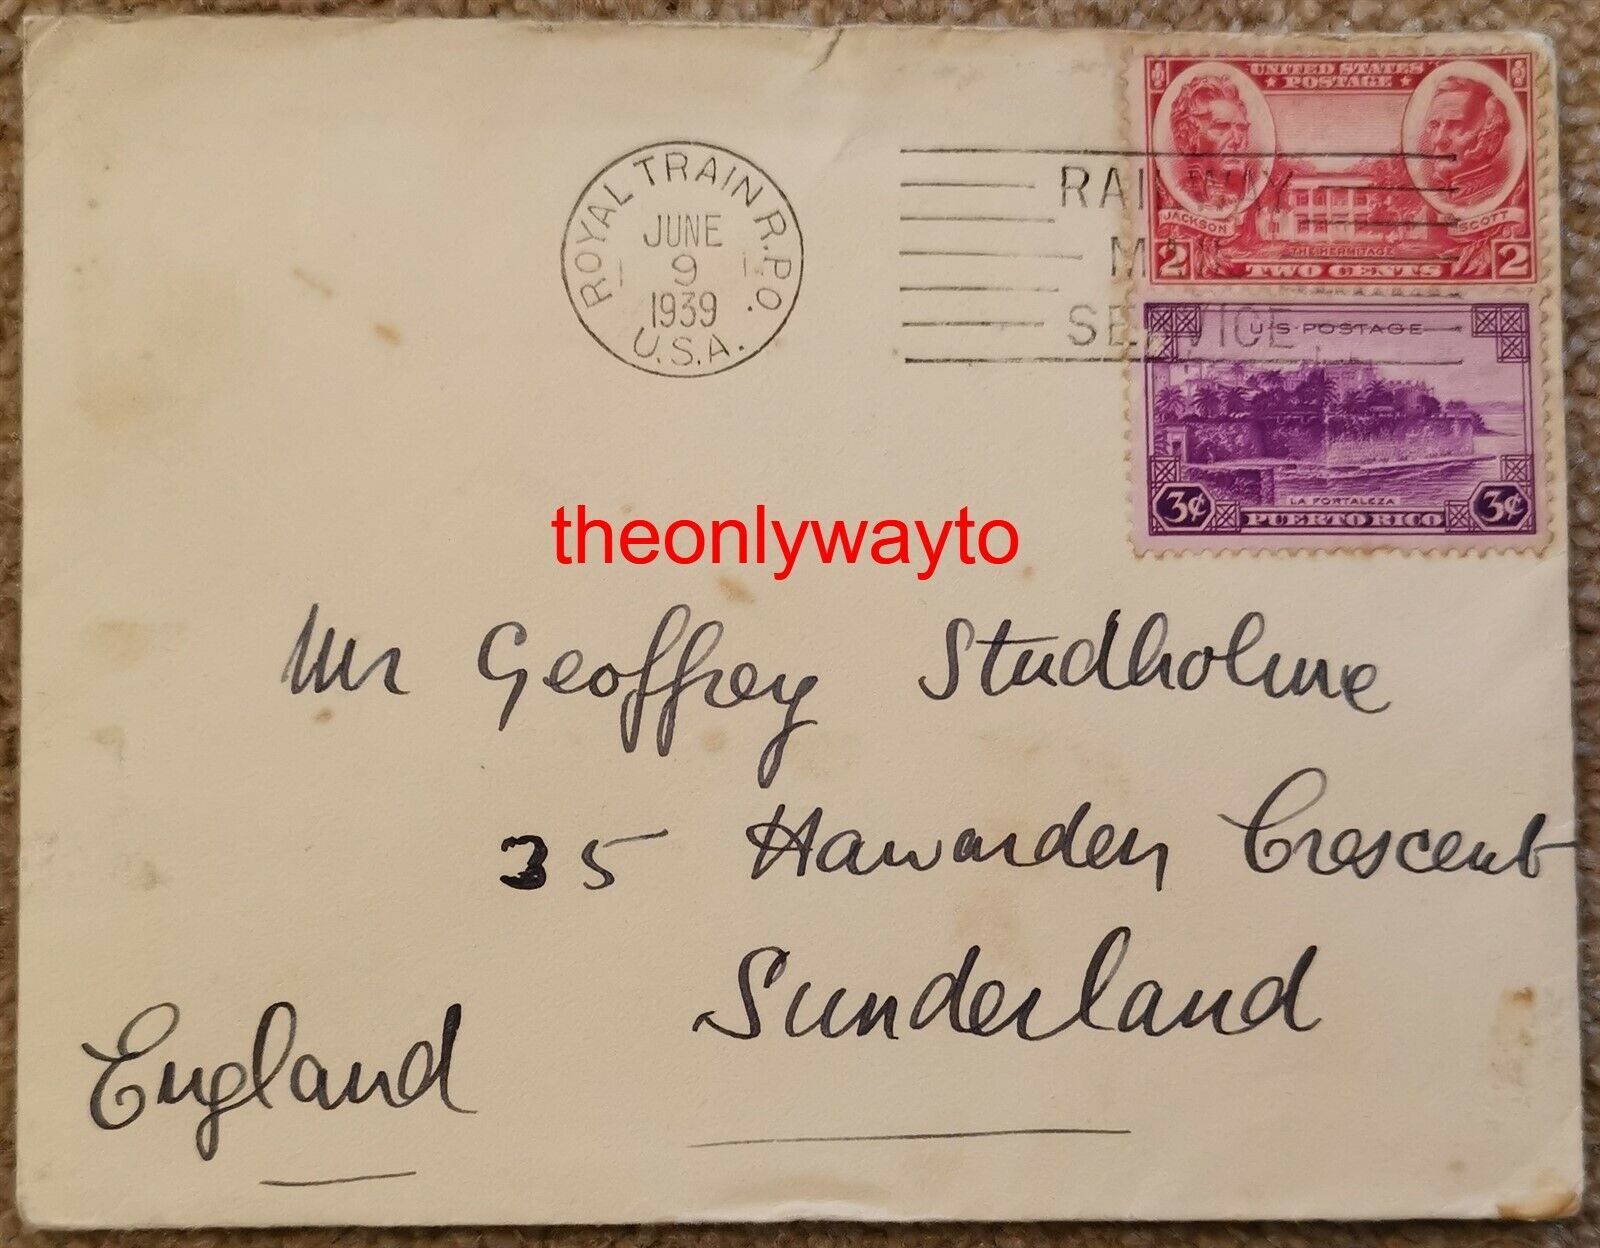 ROYAL TRAIN R.P.O.
JUNE
9
1939
U.S.A.
RAILWAY
MAIL
SERVICE
UNITED STATES
POSTAGE
JACKSON
SCOTT
THE HERMITAGE
2 TWO CENTS 2
U·S·POSTAGE
LA FORTALEZA
3¢ PUERTO RICO 3¢
theonlywayto
Mr Geoffrey Studholme
35 Hawarden Crescent
Sunderland
England